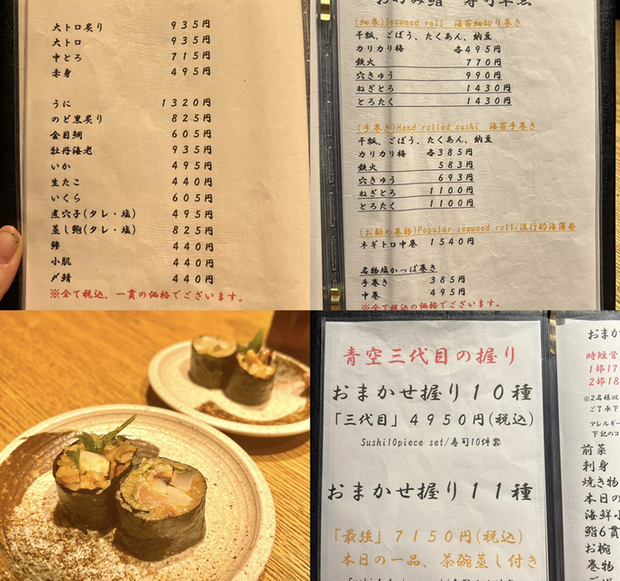 大トロ炙り 935円
大トロ 935円
中とろ 715円
赤身 495円
うに 1320円
のど黒炙り 825円
金目鯛 605円
牡丹海老 935円
いか 495円
生たこ 440円
いくら 605円
煮穴子(タレ・塩) 495円
蒸し鮑(タレ・塩) 825円
鯵 440円
小肌 440円
〆鯖 440円
※全て税込、一貫の価格でございます。
(細巻)Seaweed roll 海苔细切り巻き
干瓢、ごぼう、たくあん、納豆
カリカリ梅 各495円
鉄火 770円
穴きゅう 990円
ねぎとろ 1430円
とろたく 1430円
(手巻き)Hand rolled sushi 海苔手巻き
干瓢、ごぼう、たくあん、納豆
カリカリ梅 各385円
鉄火 583円
穴きゅう 693円
ねぎとろ 1100円
とろたく 1100円
(お勧め巻物)Popular seaweed roll/流行的海藻卷
ネギトロ中巻 1540円
名物塩かっぱ巻き
手巻き 385円
中巻 495円
※全て税込、一貫の価格でございます。
青空三代目の握り
おまかせ握り10種
「三代目」4950円(税込)
Sushi10piece set/寿司10件套
おまかせ握り11種
「最強」7150円(税込)
本日の一品、茶碗蒸し付き
おまか
時短営
1部17
2部18
※2名様以
ご了承下
アレルギー
下記のコ
前菜
刺身
焼き物
本日の
海鮮小
鮨6貫
お椀
巻物